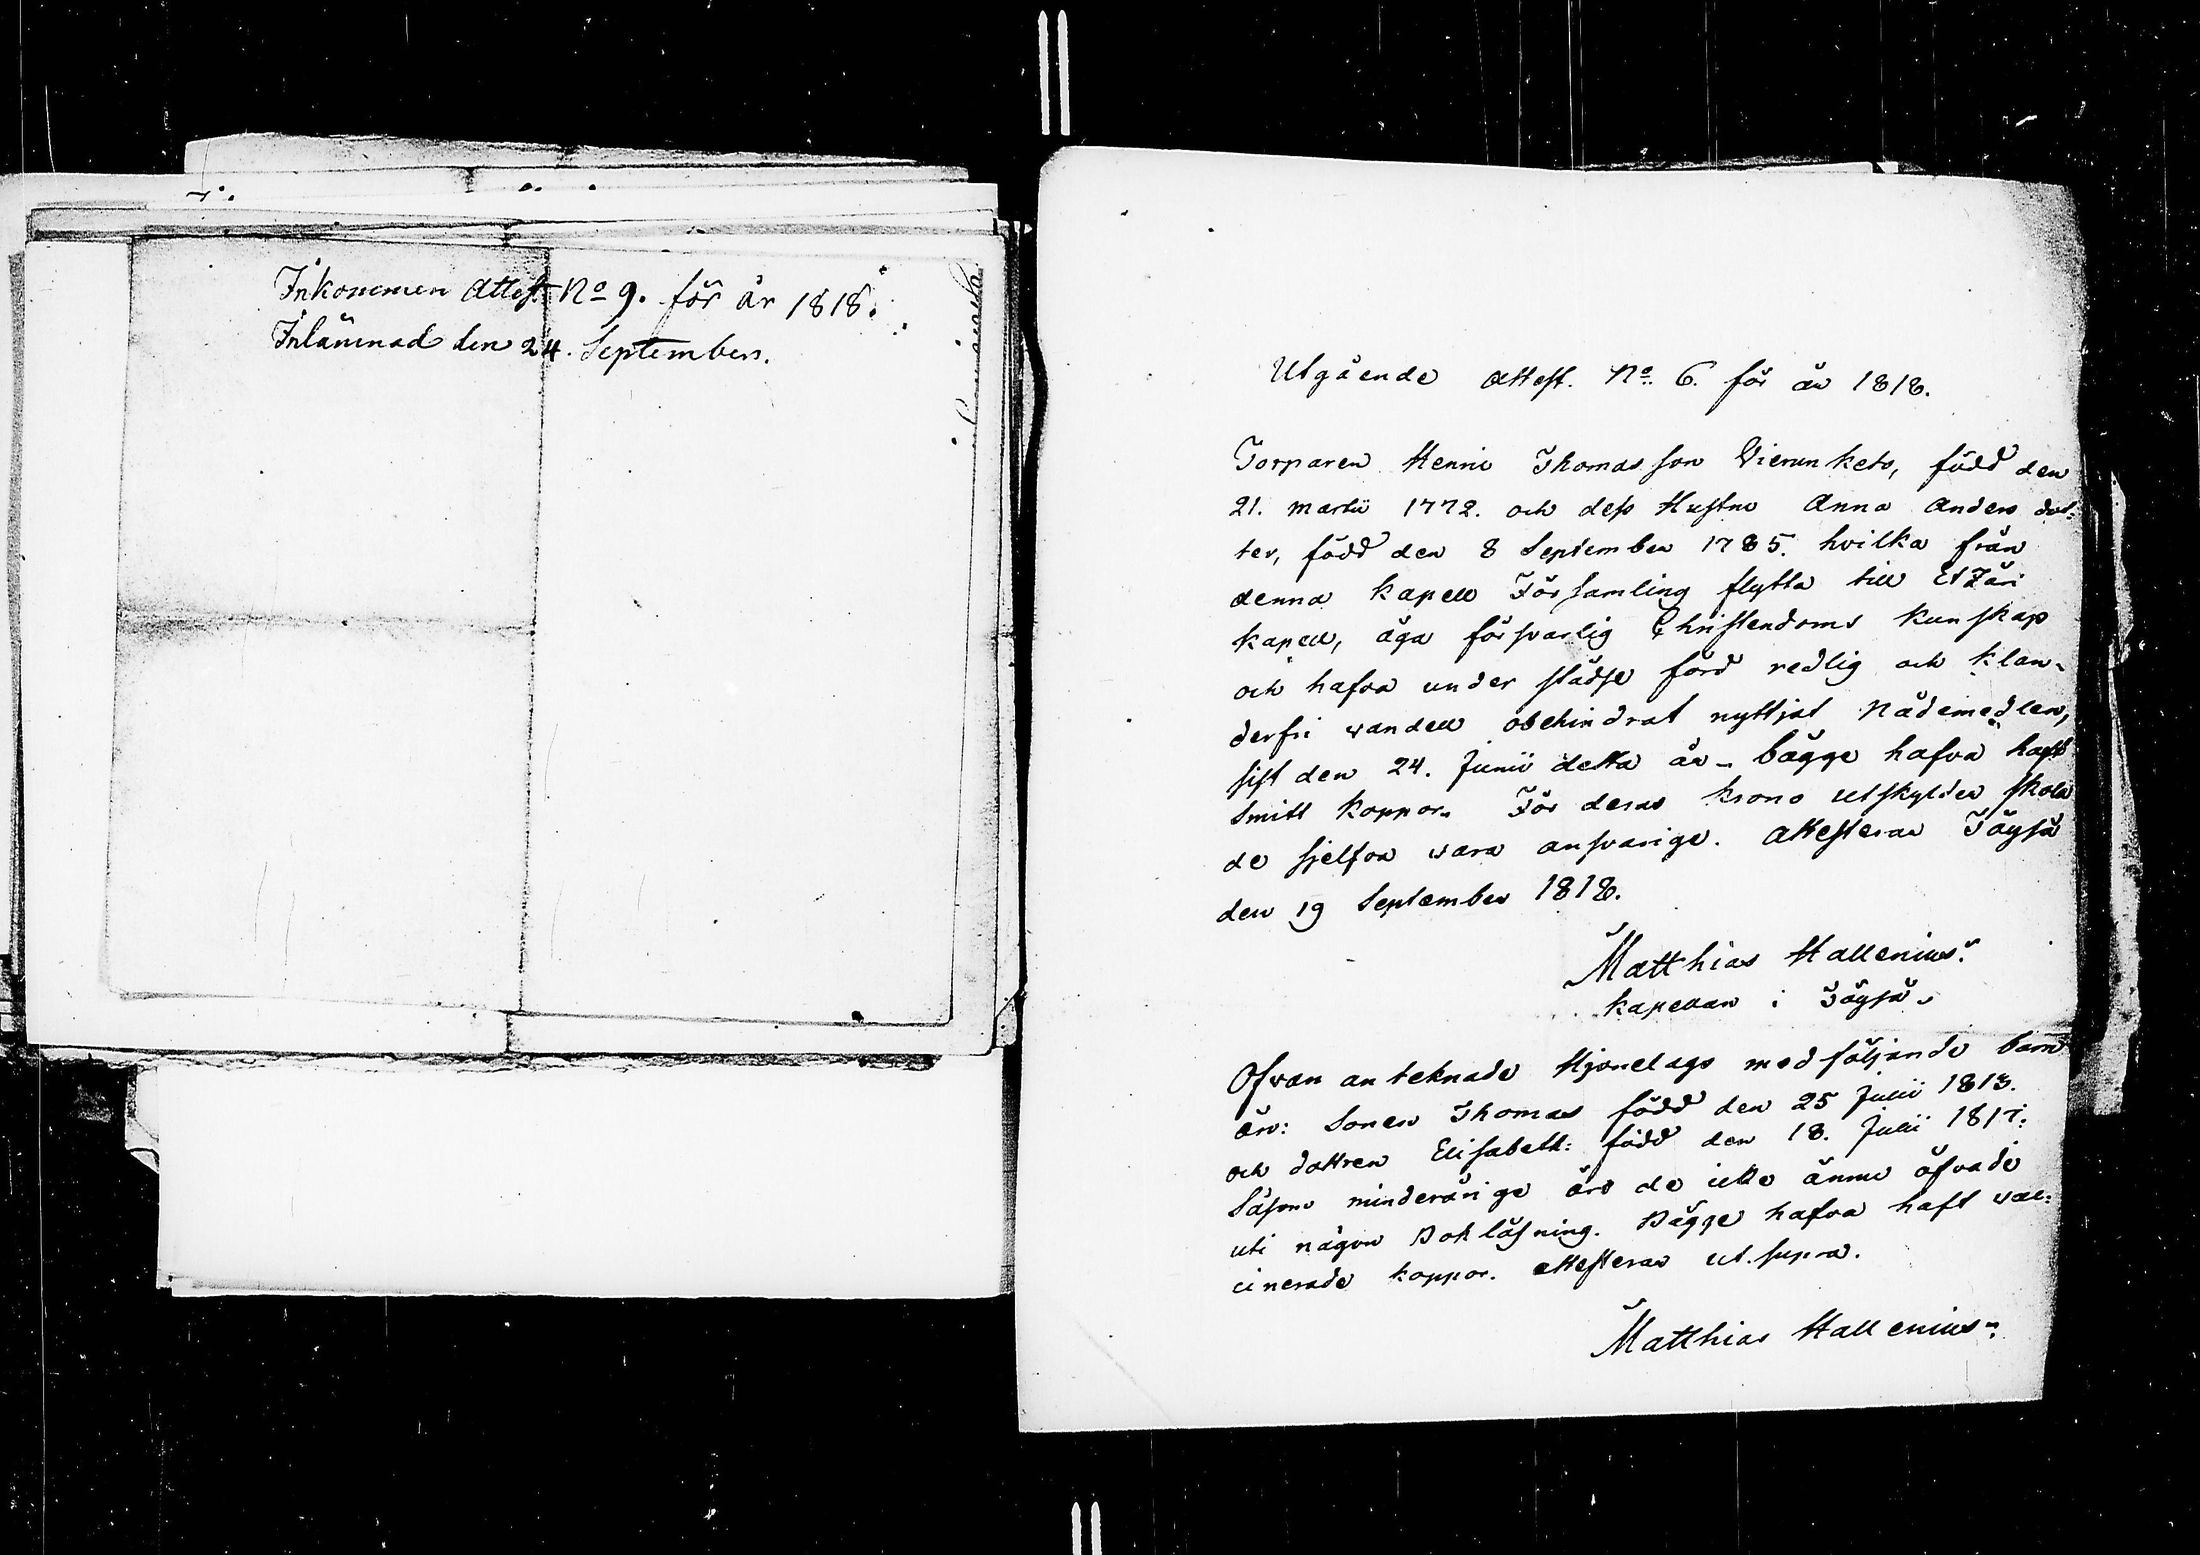 Inkommen Attest No 9. för år 1818.
Inlämnad den 24. September.
Utgående Attest. No. 6. för år 1818.
Torparen Henric Thomasson Vierunketo, född den
21. Martii 1772. och dess Hustru Anna Anders dot-
ter, född den 8 September 1785. hvilka från
denna Kapell Församling flytta till Etzäri
Kapell, äga försvarlig Christendoms Kunskap
och hafva under städse förd redlig och klan-
derfri vandell obehindrat nyttjat Nådemedlen,
sist den 24. Junii detta år - bägge hafva haft
Smitt Koppor. För deras Krono utskylder skola
de sjelfva vara ansvarige. Attesteras Töysä
den 19 September 1818.
Matthias Hallenius.
Kapellan i Töysä.
Ofvan antecknade Hjonelags medföljande barn
äro: Sonen Thomas född den 25 Julii 1813.
och dottren Elisabeth: född den 18. Julii 1817.
Såsom minderårige äro de icke ännu öfvade
uti någon Bokläsning. Bägge hafva haft vac-
cinerade koppor. Attesteras ut supra.
Matthias Hallenius.